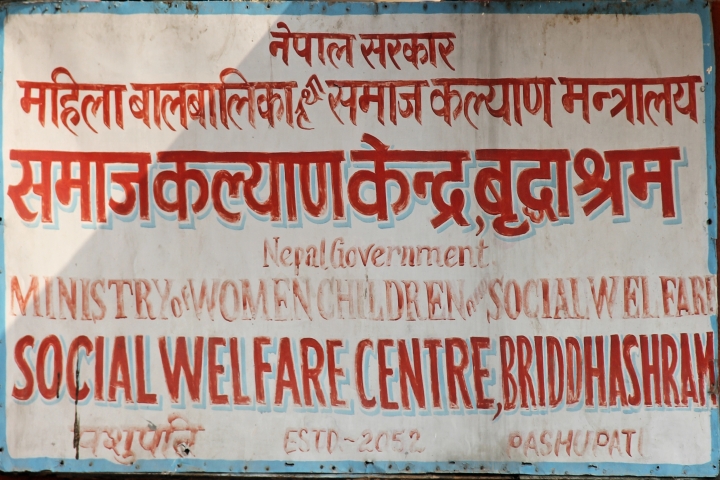 नेपाल सरकार
महिला बालबालिका तथा समाज कल्याण मन्त्रालय
समाज कल्याण केन्द्र, बृद्धाश्रम
Nepal Government
MINISTRY of WOMEN CHILDREN and SOCIAL WELFARE
SOCIAL WELFARE CENTRE, BRIDDHASHRAM
पशुपति ESTD-2052 PASHUPATI